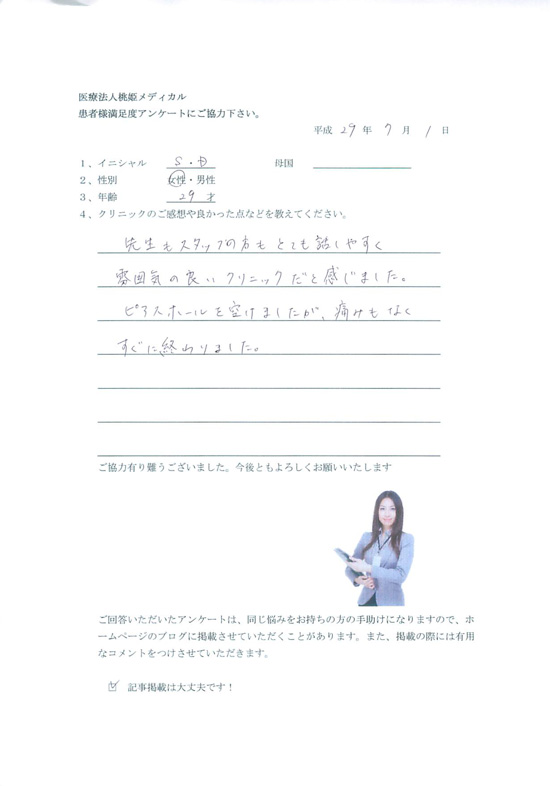 医療法人桃姫メディカル
患者様満足度アンケートにご協力下さい。
平成 29 年 7 月 1 日
1、イニシャル S・D 母国
2、性別 女性・男性
3、年齢 29 才
4、クリニックのご感想や良かった点などを教えてください。
先生もスタッフの方もとても話しやすく
雰囲気の良いクリニックだと感じました。
ピアスホールを空けましたが、痛みもなく
すぐに終わりました。
ご協力有り難うございました。今後ともよろしくお願いいたします
ご回答いただいたアンケートは、同じ悩みをお持ちの方の手助けになりますので、ホ
ームページのブログに掲載させていただくことがあります。また、掲載の際には有用
なコメントをつけさせていただきます。
☑ 記事掲載は大丈夫です！